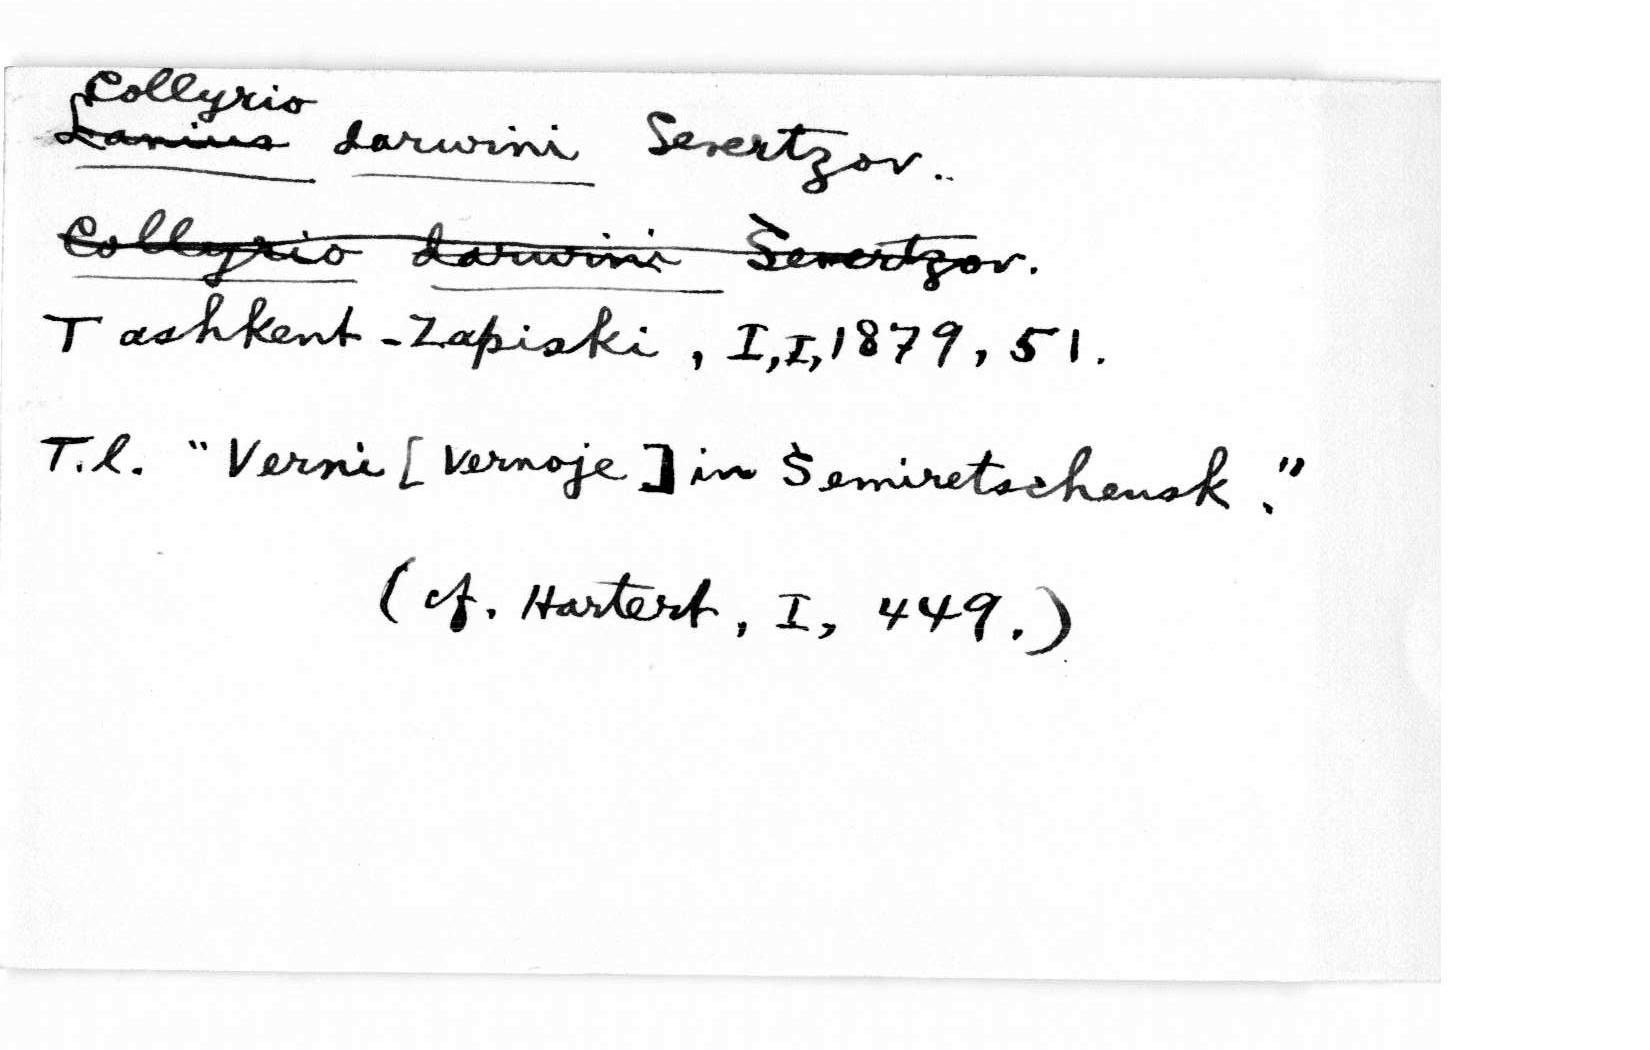 Collyrio
Lanius darwini Severtzov.
Collyrio darwini Severtzov.
Tashkent-Zapiski, I, I, 1879, 51.
T.l. "Verni [Vernoje] in Semiretschensk."
(cf. Hartert, I, 449.)